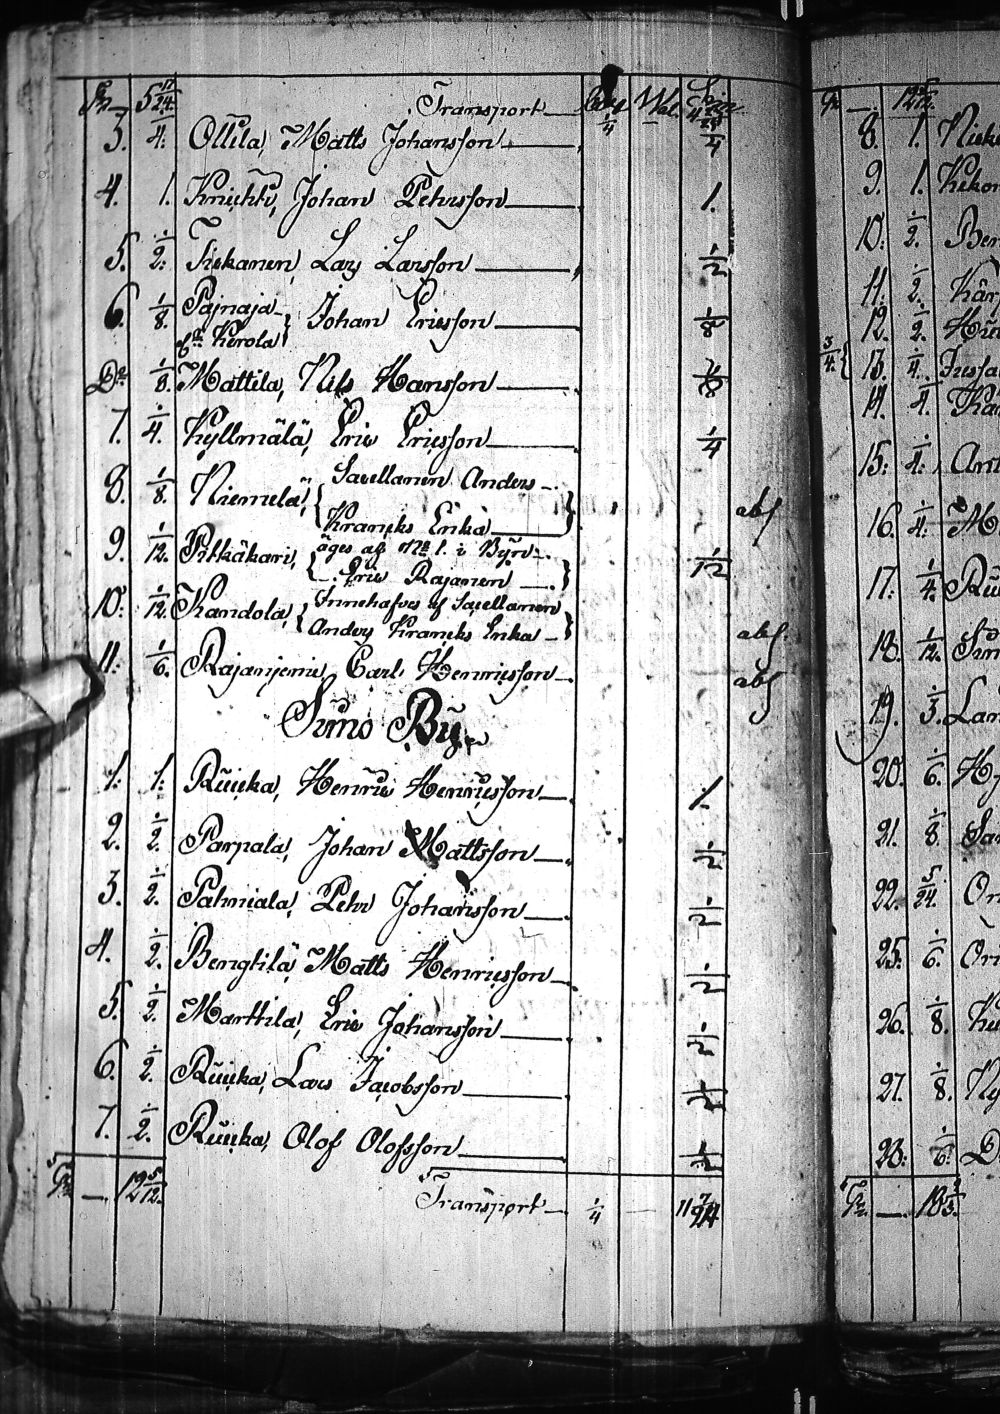 Tr. — 5 17/24. Transport — 1/4 Wal.
3. 4. Ollila, Matts Johansson — 1/4
4. 1. Knichti, Johan Pehrsson — 1.
5. 1/2: Tiekanen, Lars Larsson — 1/2
6. 1/8. Pajnaja — Johan Ericsson — 1/8
Ca Kerola
Do 1/8. Mattila, Nils Hansson — 1/8
7. 1/4. Kyllmälä, Eric Ericsson — 1/4
8. 1/8. Niemelä, Saiellanen Anders —. abs
Krancks Erika —
9. 1/12. Pitkäkari, äges af No 1. i Byn —. 1/12
—. Eric Rajanen —.
10: 1/12. Kandola, Innehafves af Saiellanen
Anders Krancks Erika — abs.
11. 1/6. Rajanjemi, Carl Henricsson —. abs
Simo By
1. 1. Ruuka, Henric Henricsson —. 1.
2. 1/2. Parpala, Johan Mattsson —. 1/2
3. 1/2. Pahniala, Pehr Johansson —. 1/2
4. 1/2. Bengtilä, Matts Henricsson —. 1/2
5. 1/2. Marttila, Eric Johansson —. 1/2
6. 1/2. Ruuka, Lars Jacobsson — 1/2
7. 1/2. Ruuka, Olof Olofsson — 1/2
Tr. — 12 5/12. Transport — 1/4 — 11 7/24
Tr. —. 12 5/12.
8. 1.
9. 1.
10. 1/2.
11. 1/2.
12. 1/2.
3/4. 13. 1/4.
14. 1/4.
15. 1/4.
16. 1/4.
17. 1/4.
18. 1/12.
19. 1/3.
20. 1/6.
21. 1/8.
22. 5/24.
25. 1/6.
26. 1/8.
27. 1/8.
28. 1/6.
Tr. —. 18 2/3.